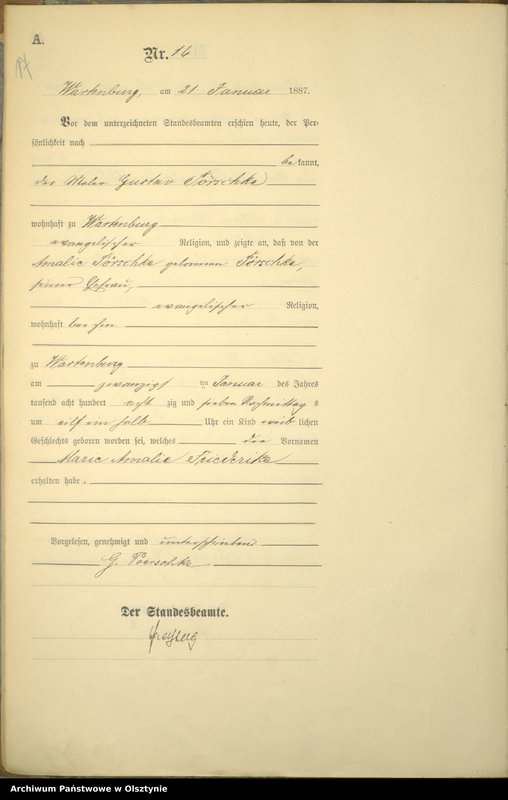 A.
17
Nr. 16
Wartenburg, am 21 Januar 1887.
Vor dem unterzeichneten Standesbeamten erschien heute, der Per-
sönlichkeit nach
be kannt,
der Maler Gustav Pörschke
wohnhaft zu Wartenburg
evangelischer Religion, und zeigte an, daß von der
Amalie Pörschke geborenen Pörschke,
seiner Ehefrau,
evangelischer Religion,
wohnhaft bei ihm
zu Wartenburg
am zwanzigs ten Januar des Jahres
tausend acht hundert acht zig und sieben Nachmittag s
um eilf ein halb Uhr ein Kind weib lichen
Geschlechts geboren worden sei, welches die Vornamen
Marie Amalie Friederike
erhalten habe.
Vorgelesen, genehmigt und unterschrieben
G. Poerschke.
Der Standesbeamte.
Archiwum Państwowe w Olsztynie